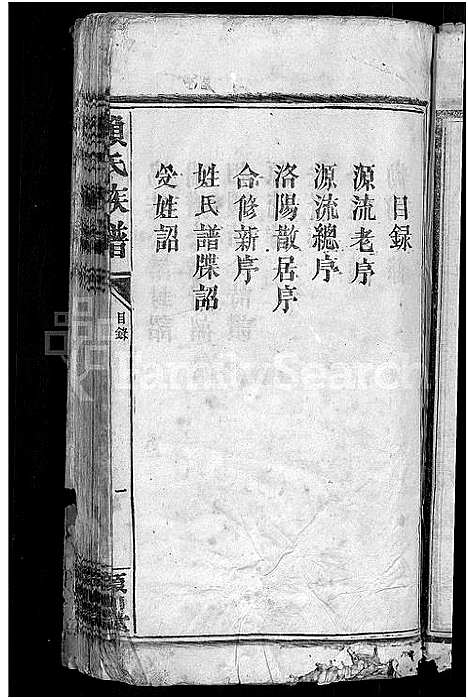 目錄
源流老序
源流總序
洛陽散居序
合修新序
姓氏譜牒詔
受姓詔
賴氏族譜
目錄
一
FamilySearch